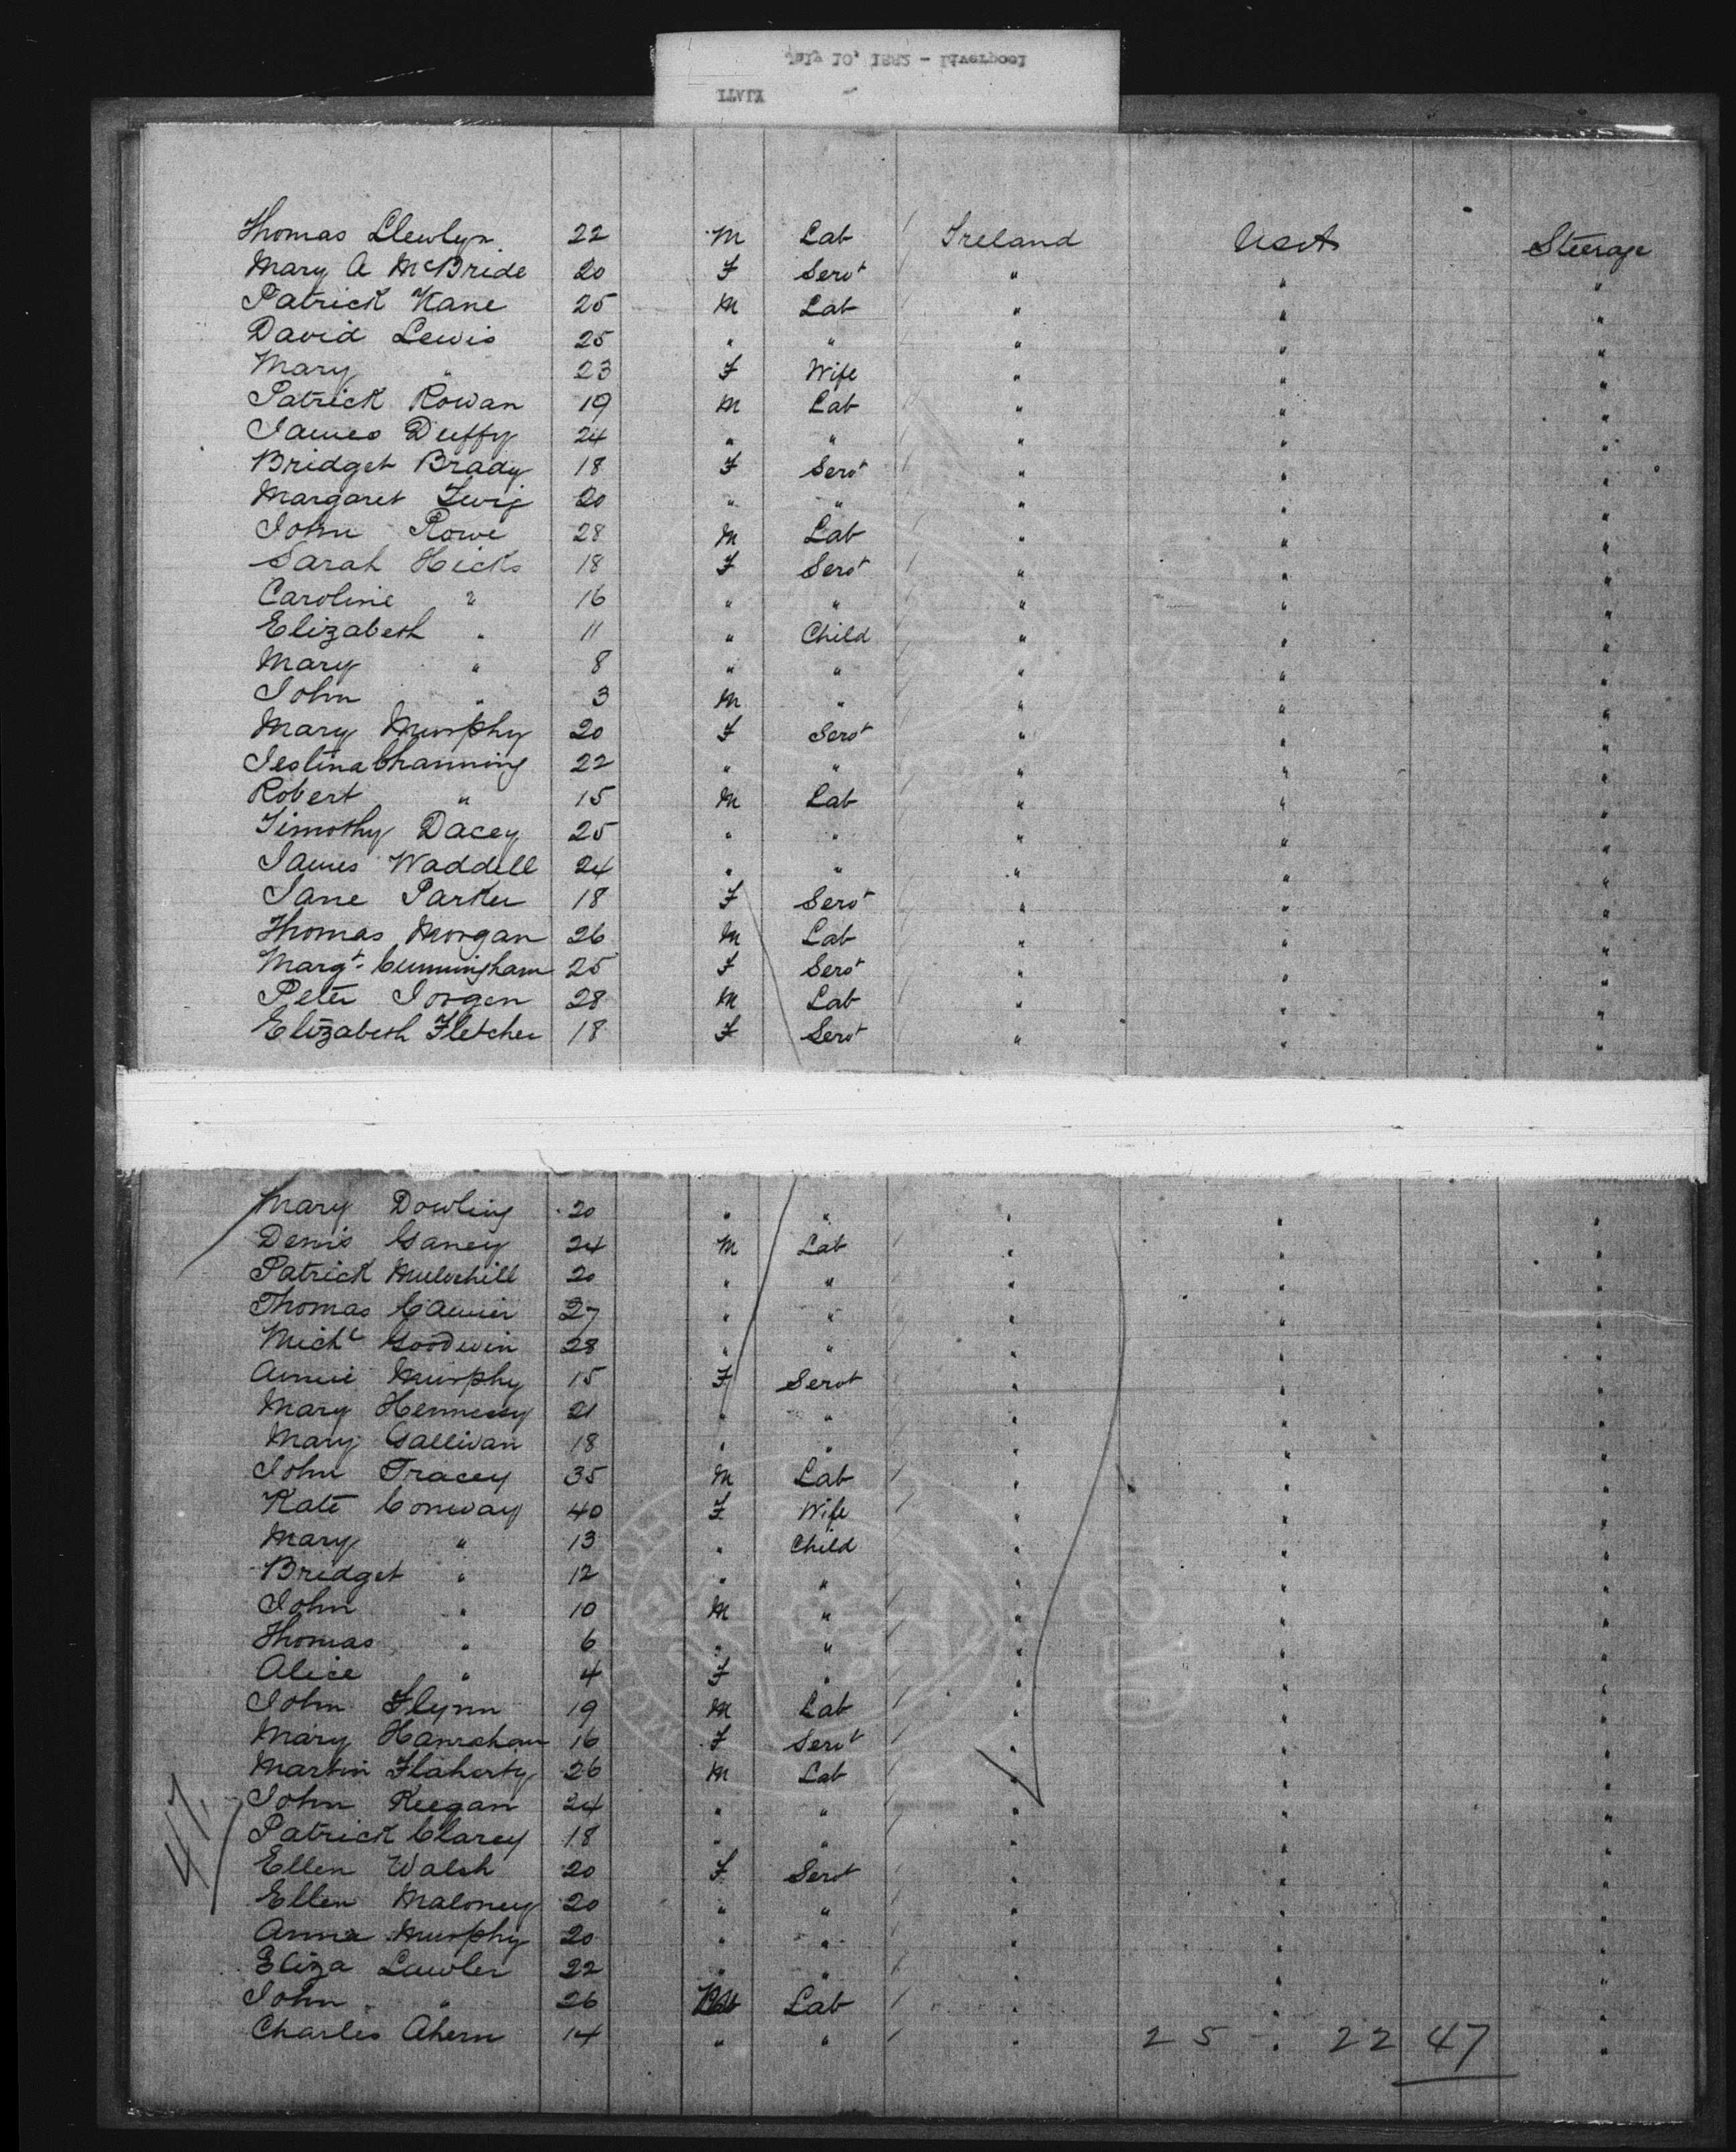 July 10, 1882 - Liverpool
Thomas Llewlyn 22 M Lab Ireland USA Steerage
Mary A McBride 20 F Servt " " "
Patrick Kane 25 M Lab " " "
David Lewis 25 " " " " "
Mary " 23 F Wife " " "
Patrick Rowan 19 M Lab " " "
James Duffy 24 " " " " "
Bridget Brady 18 F Servt " " "
Margaret 20 " " " " "
John Rowe 28 M Lab " " "
Sarah Hicks 18 F Servt " " "
Caroline " 16 " " " " "
Elizabeth " 11 " Child " " "
Mary " 8 " " " " "
John " 3 M " " " "
Mary Murphy 20 F Servt " " "
Channing 22 " " " " "
Robert " 15 M Lab " " "
Timothy Dacey 25 " " " " "
James Waddell 24 " " " " "
Jane Parker 18 F Servt " " "
Thomas Morgan 26 M Lab " " "
Margt Cunningham 25 F Servt " " "
Peter Jorgen 28 M Lab " " "
Elizabeth Fletcher 18 F Servt " " "
Mary Dowling 20 " " " " "
Denis Ganey 24 M Lab " " "
Patrick Mulvehill 20 " " " " "
Thomas 27 " " " " "
Michl Goodwin 28 " " " " "
Annie Murphy 15 F Servt " " "
Mary Hennessy 21 " " " " "
Mary Gallivan 18 " " " " "
John Tracey 35 M Lab " " "
Kate Conway 40 F Wife " " "
Mary " 13 " Child " " "
Bridget " 12 " " " " "
John " 10 M " " " "
Thomas " 6 " " " " "
Alice " 4 F " " " "
John Flynn 19 M Lab " " "
Mary Hanrahan 16 F Servt " " "
Martin Flaherty 26 M Lab " " "
John Keegan 24 " " " " "
Patrick Clarey 18 " " " " "
Ellen Walsh 20 F Servt " " "
Ellen Maloney 20 " " " " "
Anna Murphy 20 " " " " "
Eliza Lawler 22 " " " " "
John " 26 Lab " " "
Charles Ahern 14 " " " " "
25 22 47
47